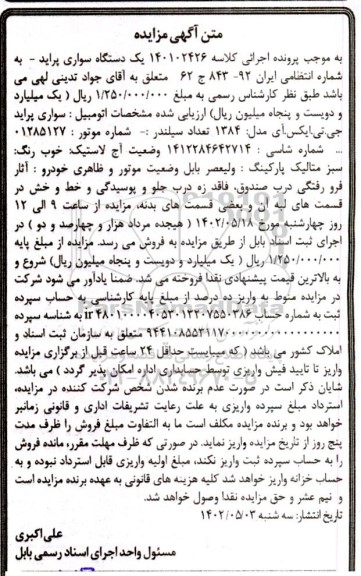 متن آگهی مزایده
به موجب پرونده اجرائی کلاسه ۱۴۰۱۰۲۴۲۶ یک دستگاه سواری پراید - به
شماره انتظامی ایران ۹۲- ۸۴۳ ج ۶۲ متعلق به آقای جواد تدینی لهی می
باشد طبق نظر کارشناس رسمی به مبلغ ۱/۲۵۰/۰۰۰/۰۰۰ ریال ( یک میلیارد
و دویست و پنجاه میلیون ریال) ارزیابی شده مشخصات اتومبیل : سواری پراید
جی.تی.ایکس.آی مدل: ۱۳۸۴ تعداد سیلندر :- شماره موتور : ۰۱۲۸۵۱۲۷
... شماره شاسی : ۱۴۱۲۲۸۴۶۴۲۷۱۴ وضعیت آج لاستیک: خوب رنگ:
سبز متالیک پارکینگ : ولیعصر بابل وضعیت موتور و ظاهری خودرو : آثار
فرو رفتگی درب صندوق، فاقد زه درب جلو و پوسیدگی و خط و خش در
قسمت های لبه ای و بعضی قسمت های بدنه، مزایده از ساعت ۹ الی ۱۲
روز چهارشنبه مورخ ۱۴۰۲/۰۵/۱۸ ( هیجده مرداد هزار و چهارصد و دو ) در
اجرای ثبت اسناد بابل از طریق مزایده به فروش می رسد. مزایده از مبلغ پایه
۱/۲۵۰/۰۰۰/۰۰۰ ریال ( یک میلیارد و دویست و پنجاه میلیون ریال) شروع و
به بالاترین قیمت پیشنهادی نقدا فروخته می شد. ضمنا یادآور می شود شرکت
در مزایده منوط به واریز ده درصد از مبلغ پایه کارشناسی با حساب سپرده
ثبت به شماره حساب به شناسه سپرده
متعلق به سازمان ثبت اسناد و
املاک کشور می باشد ( که میبایست حداقل ۲۴ ساعت قبل از برگزاری مزایده
واریز تا تایید فیش واریزی توسط حسابداری اداره امکان پذیر گردد ) می باشد.
شایان ذکر است در صورت عدم برنده شدن شخص شرکت کننده در مزایده،
استرداد مبلغ سپرده واریزی به علت رعایت تشریفات اداری و قانونی زمانبر
خواهد بود و برنده مزایده مکلف است ما به التفاوت مبلغ فروش را ظرف مدت
پنج روز از تاریخ مزایده واریز نماید. در صورتی که ظرف مهلت مقرر، مانده فروش
را به حساب سپرده ثبت واریز نکند، مبلغ اولیه واریزی قابل استرداد نبوده و به
حساب خزانه واریز خواهد شد کلیه هزینه های قانونی به عهده برنده مزایده است
و نیم عشر و حق مزایده نقدا وصول خواهد شد.
تاریخ انتشار: سه شنبه ۱۴۰۲/۰۵/۰۳
علی اکبری
مسئول واحد اجرای اسناد رسمی بابل